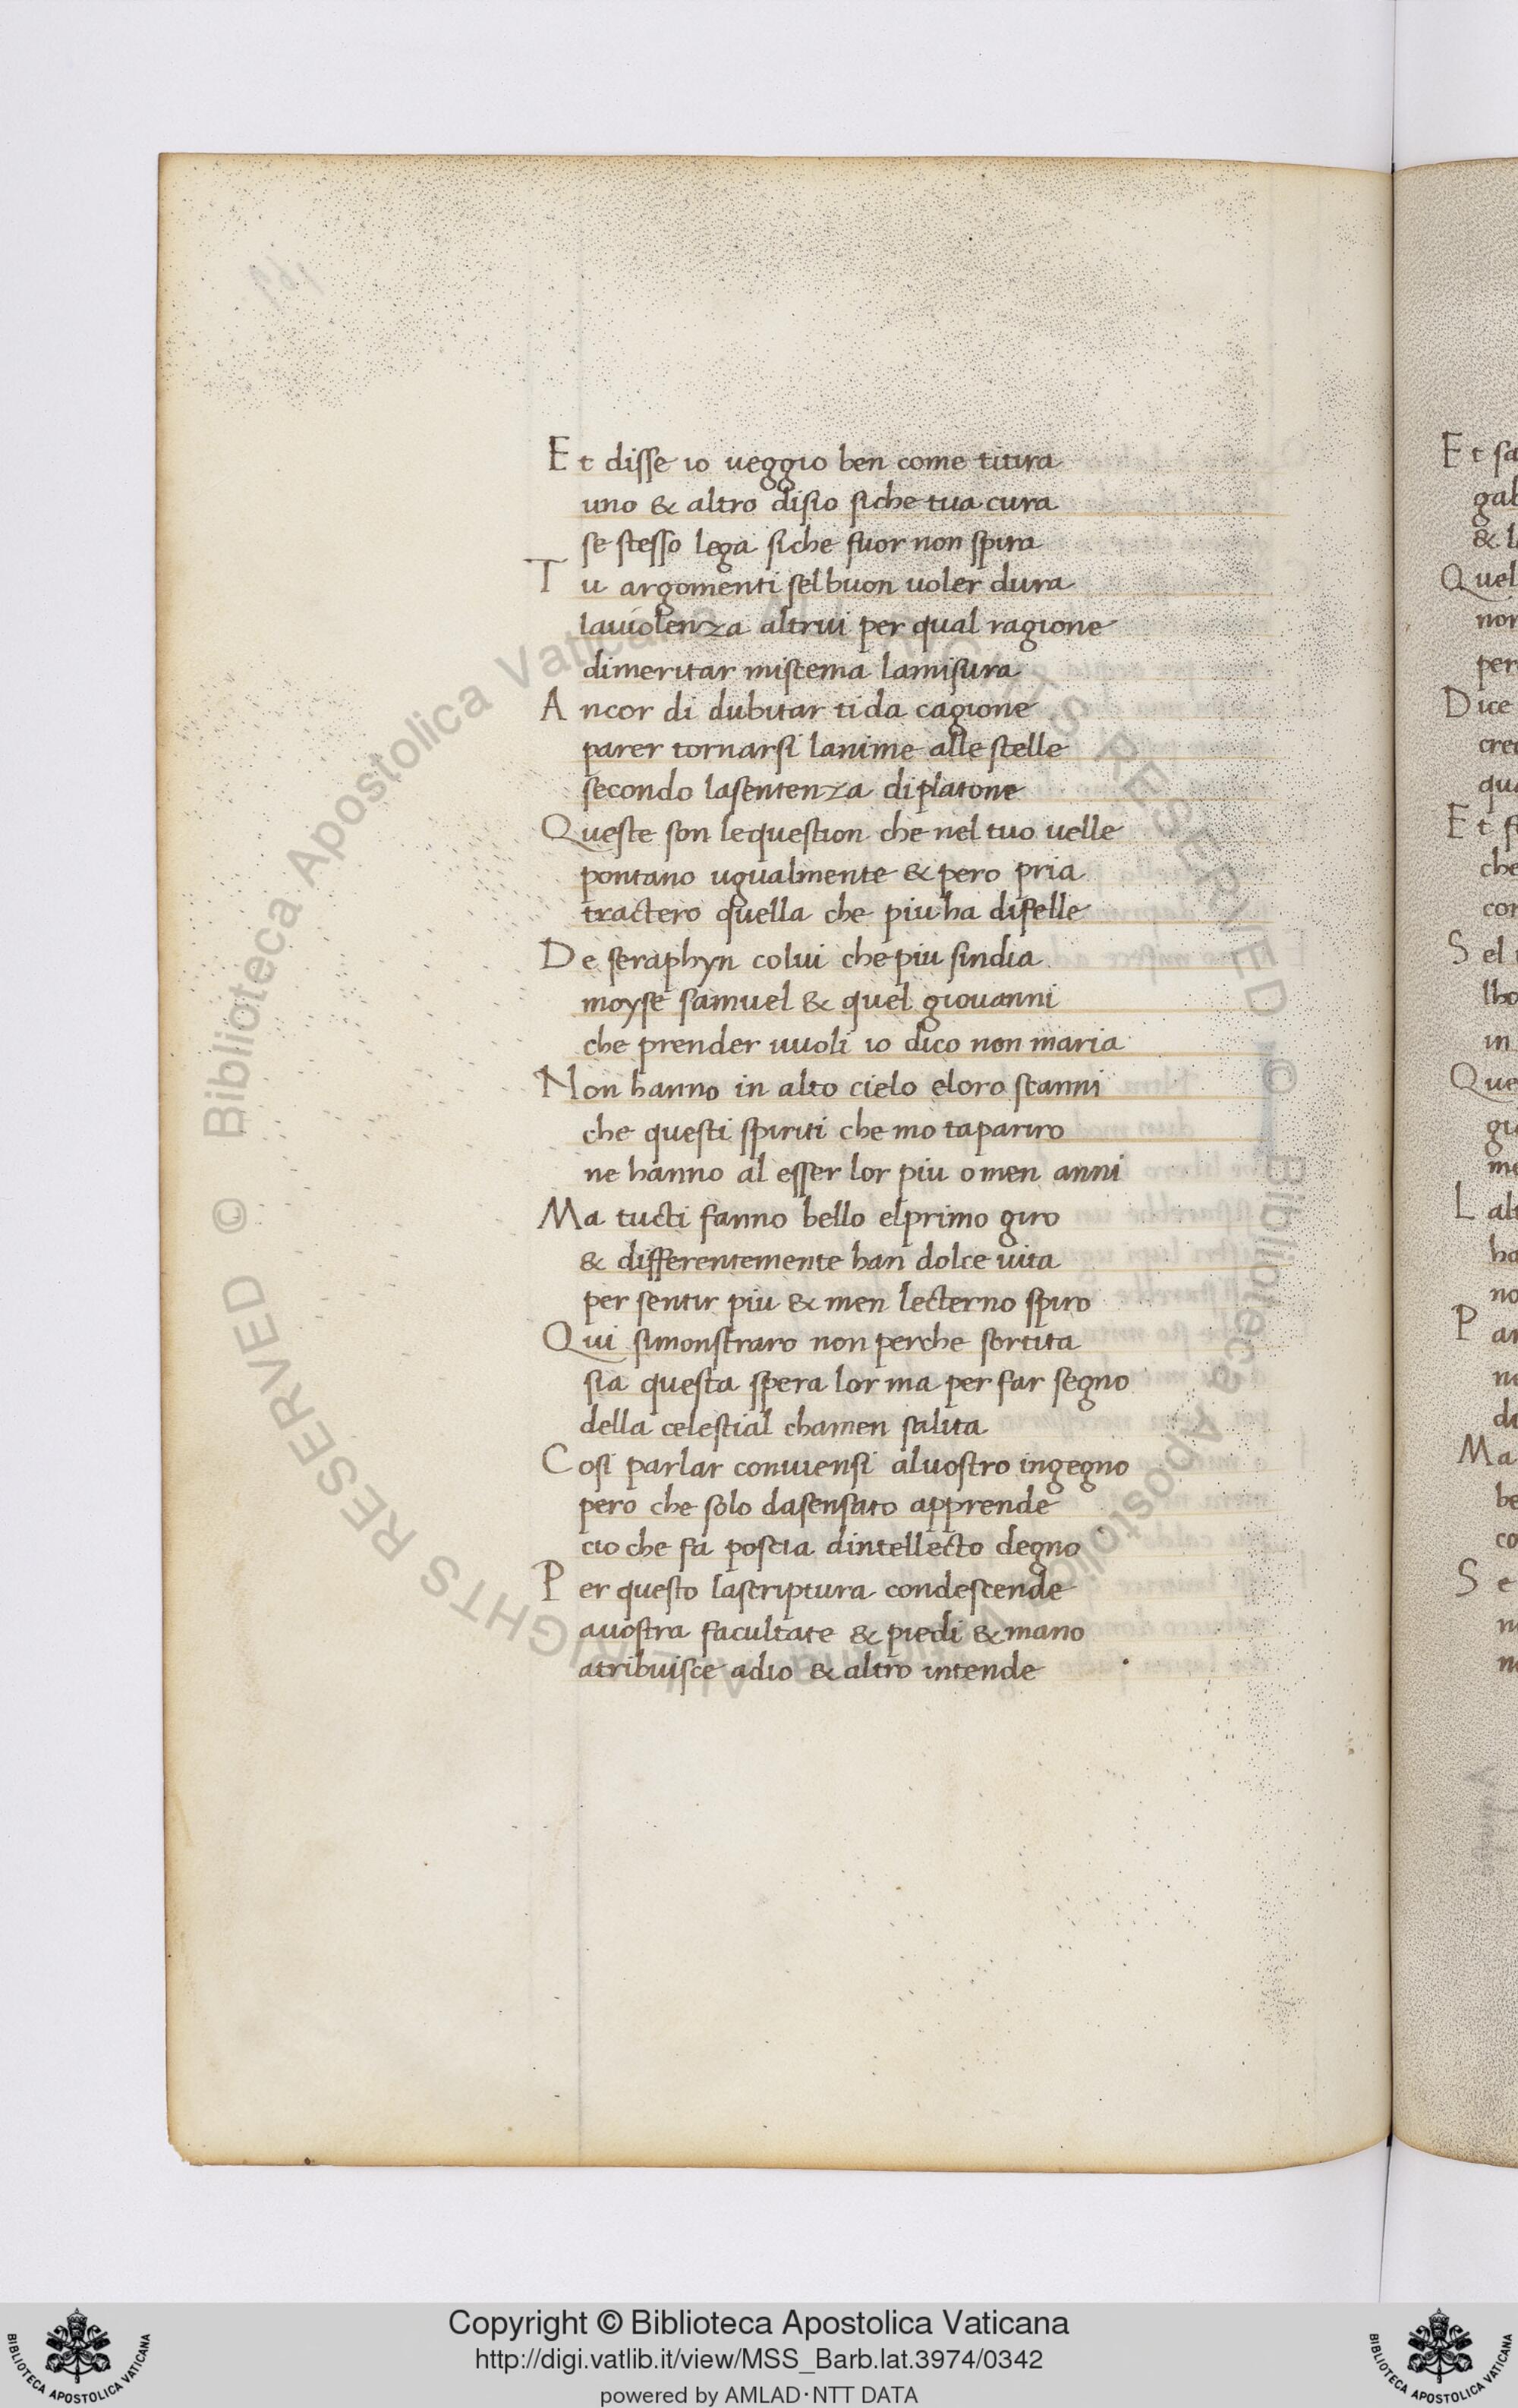 Et disse io ueggio ben come titira
uno & altro disio siche tua cura
se stesso lega siche fuor non spira
Tu argomenti selbuon uoler dura
lauiolenza altrui per qual ragione
dimeritar miscema lamisura
Ancor di dubitar tida cagione
parer tornarsi lanime alle stelle
secondo lasentenza diplatone
Queste son lequestion che nel tuo uelle
pontano ugualmente & pero pria
tractero quella che piu ha difelle
De seraphyn colui che piu sindia
moyse samuel & quel giouanni
che prender uuoli io dico non maria
Non hanno in alto cielo eloro scanni
che questi spiriti che mo tapariro
ne hanno al esser lor piu o men anni
Ma tucti fanno bello elprimo giro
& differentemente han dolce uita
per sentir piu & men lecterno spiro
Qui simonstraro non perche sortita
sia questa spera lor ma per far segno
della celestial chamen salita
Cosi parlar conuiensi aluostro ingegno
pero che solo dasensato apprende
cio che fa poscia dintellecto degno
Per questo lascriptura condescende
auostra facultate & piedi & mano
atribuisce adio & altro intende
Et
gab
& l
Quel
non
per
Dice
cre
qua
Et
che
con
Sel
lho
in
Que
me
L al
ha
no
P ar
Ma
be
co
S e
Biblioteca Apostolica Vaticana ALL RIGHTS RESERVED ©
Copyright © Biblioteca Apostolica Vaticana
http://digi.vatlib.it/view/MSS_Barb.lat.3974/0342
powered by AMLAD·NTT DATA
BIBLIOTECA APOSTOLICA VATICANA
BIBLIOTECA APOSTOLICA VATICANA